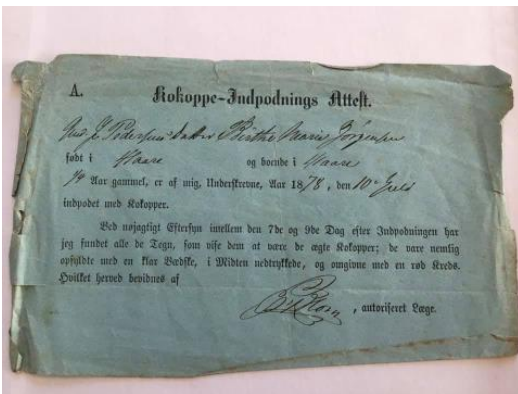 A.
Kokoppe-Indpodnings Attest.
Pedersens Datter Birthe Marie Jørgensen
født i Haare og boende i Haare
Aar gammel, er af mig, Underskrevne, Aar 1878, den 10
indpodet med Kokopper.
Ved nøjagtigt Eftersyn imellem den 7de og 9de Dag efter Indpodningen har
jeg fundet alle de Tegn, som vise dem at være de ægte Kokopper; de vare nemlig
opfyldte med en klar Vædske, i Midten nedtrykkede, og omgivne med en rød Kreds.
Hvilket herved bevidnes af
, autoriseret Læge.